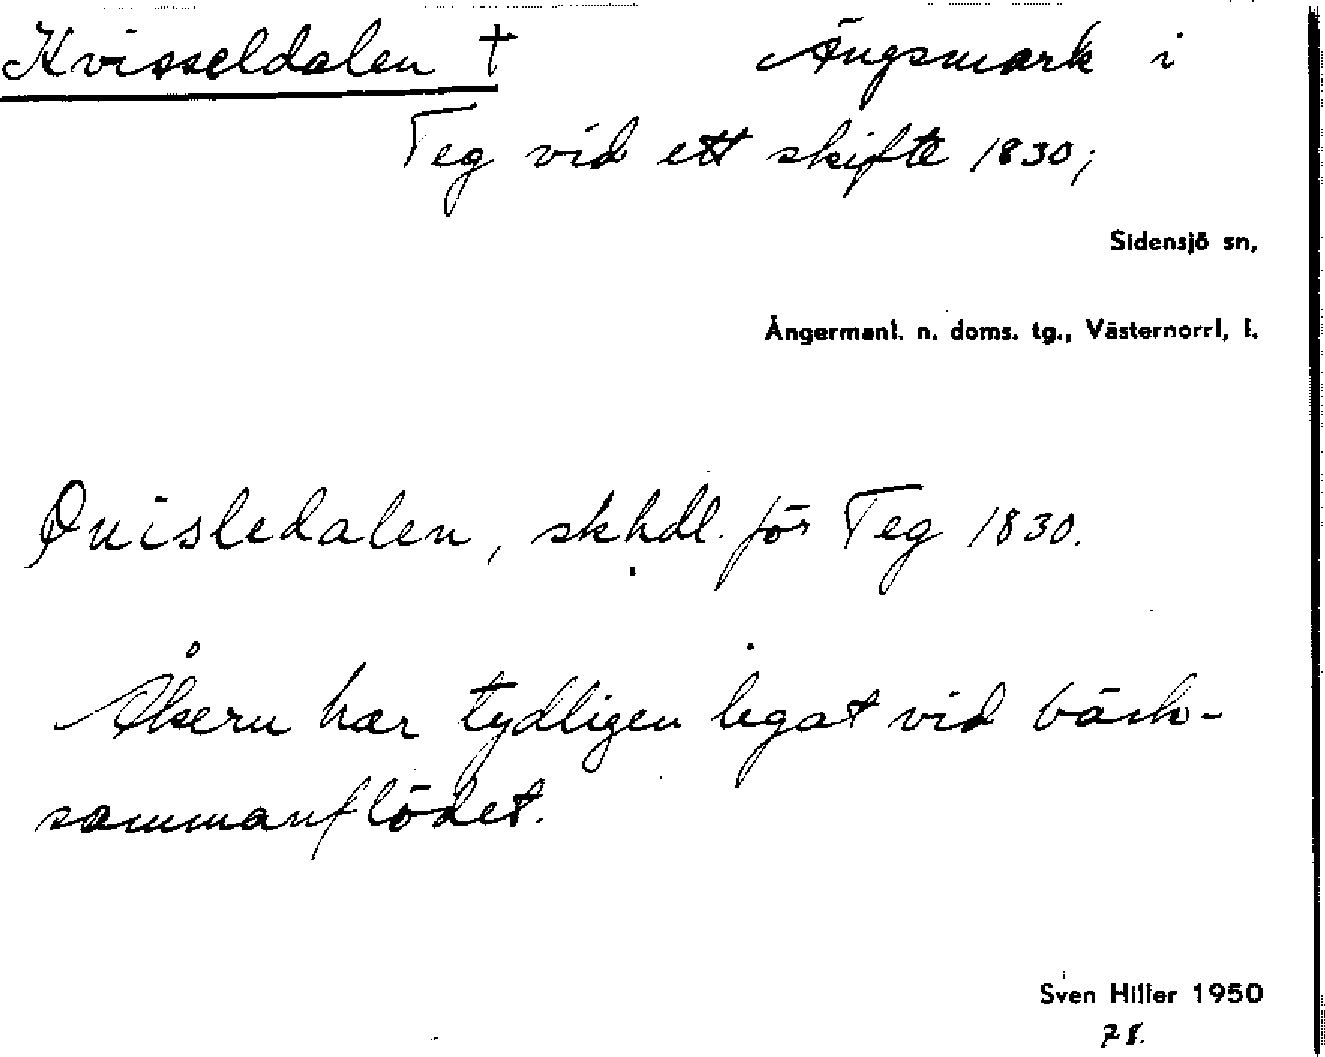 Kvisseldalen † Ängsmark i
Teg vid ett skifte 1830;
Sidensjö sn,
Ångermanl. n. doms. tg., Västernorrl, l.
Quisledalen, skhdl. för Teg 1830.
Åkern har tydligen legat vid bäck-
sammanflödet.
Sven Hiller 1950
78.